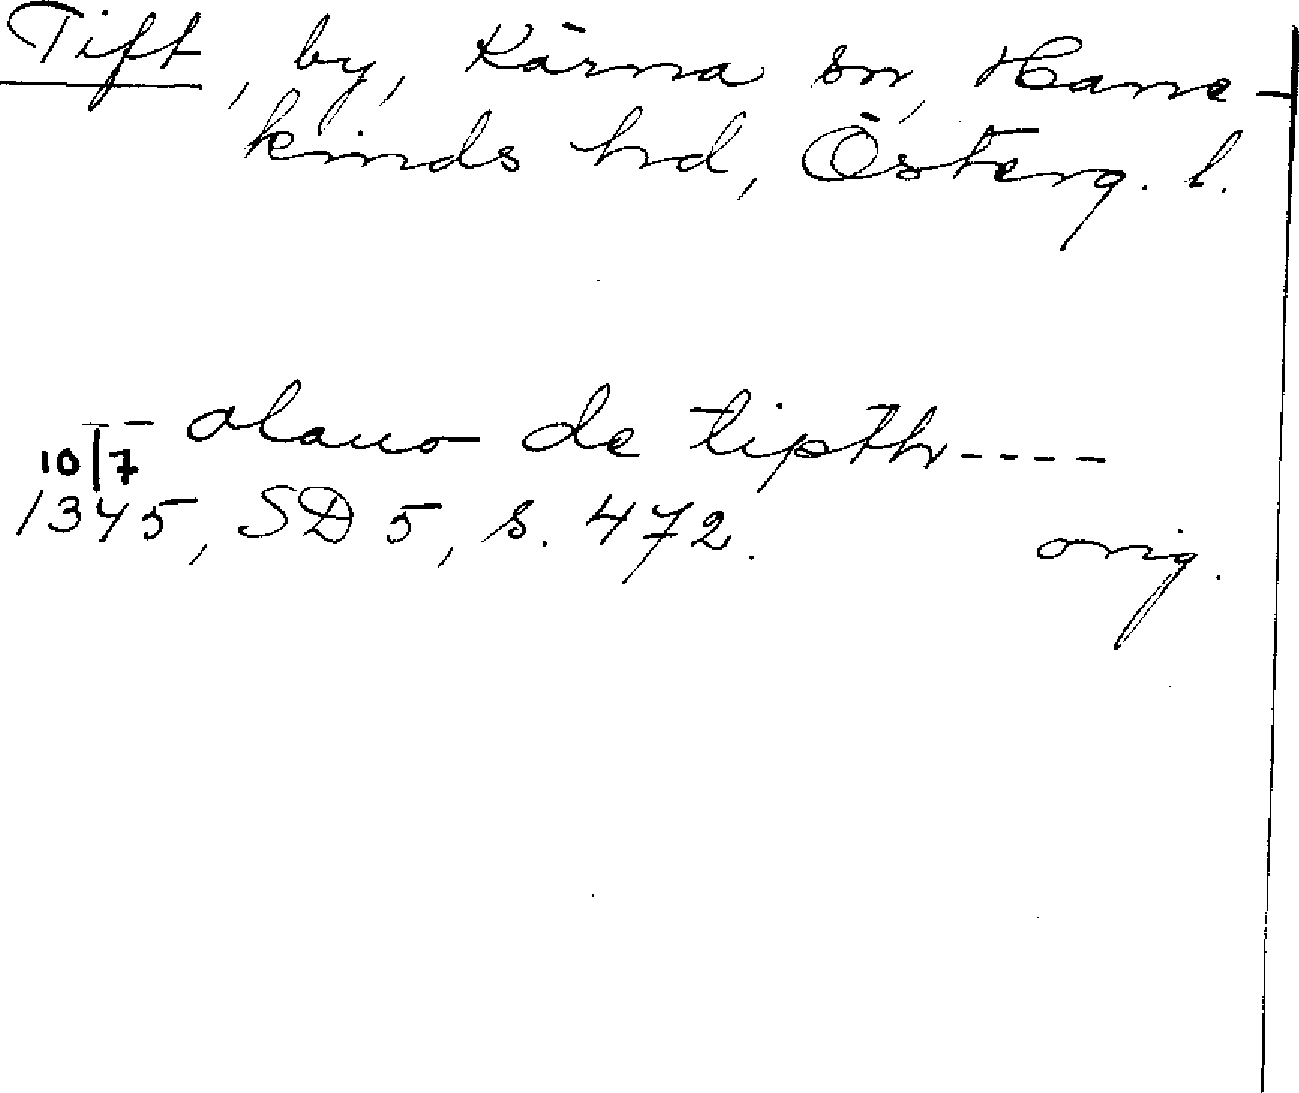 Tift, by, Kärna sn, Hane-
kinds hd, Österg. l.
-- olauo de tipth ----
10/7
1345, SD 5, s. 472.
orig.